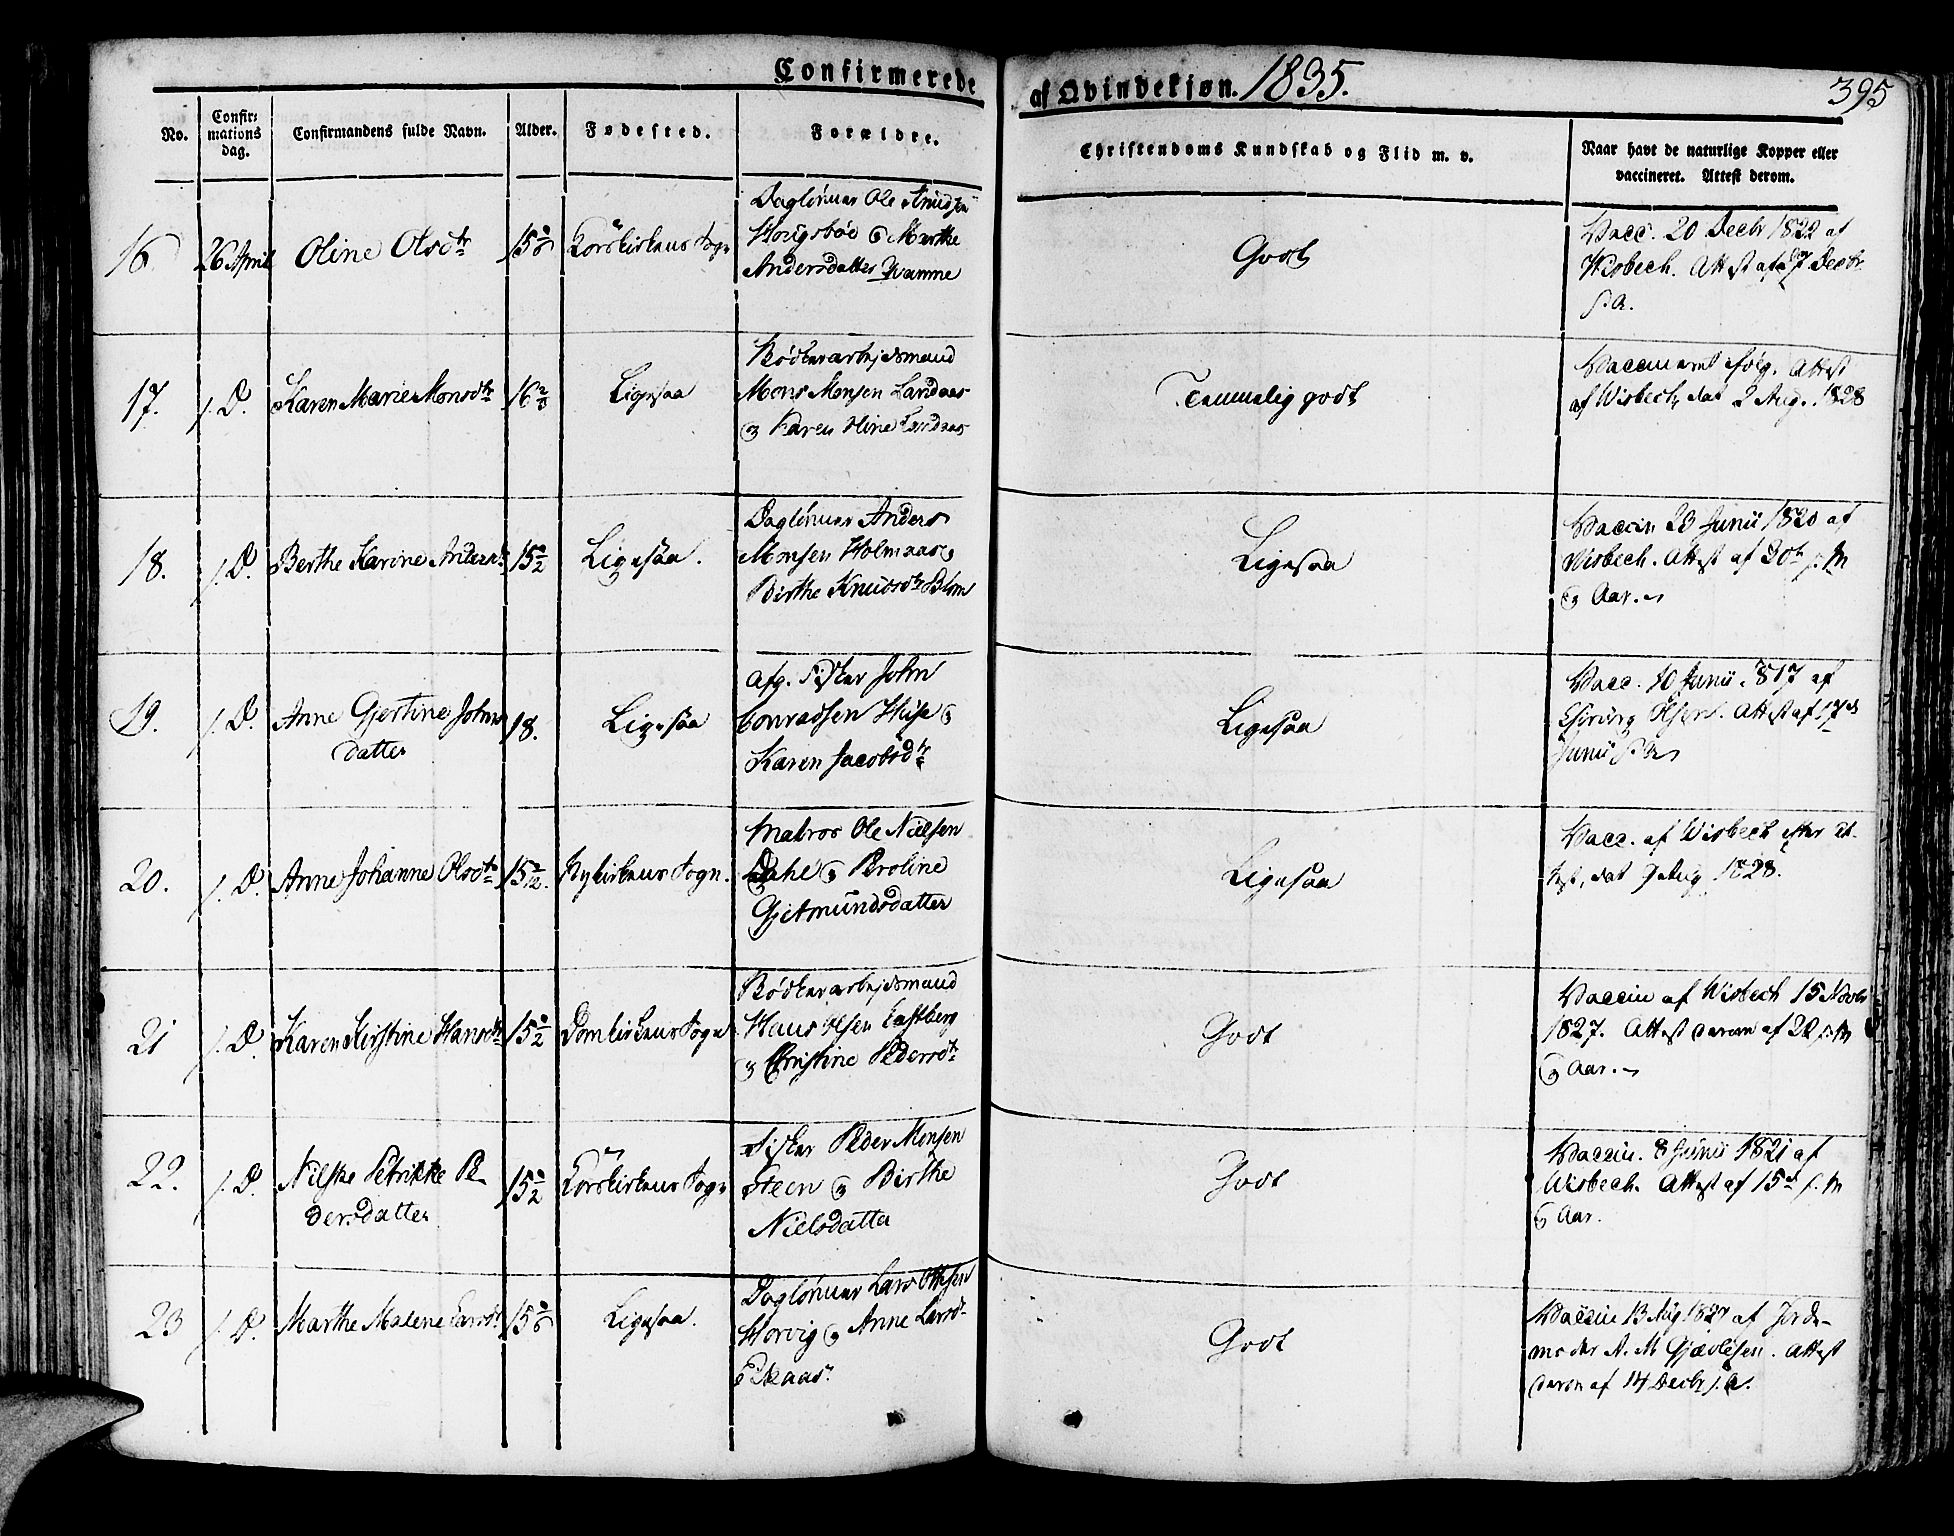 Confirmerede af Qvindekjøn. 1835. 395
No. Confir-mations dag. Confirmandens fulde Navn. Alder. Fødested. Forældre. Christendoms Kundskab og Flid m. v. Naar havt de naturlige Kopper eller vaccineret. Attest derom.
16 26 April Oline Olsdtr 15 Korskirkens Sogn Godt
Daglønner Ole Knudsen
Hougsbøe & Marthe
Andersdatter Qvamme
Vacc. 20 Decbr 1822 af
Wisbech. Attest af Decbr
s. A.
17. s. D. Karen Marie Monsdtr 16 Ligesaa Temmelig godt
Bødkerarbejdsmand
Mons Monsen Landaas
& Karen Oline Landaas
Vaccineret ifølg. Attest
af Wisbech, dat 2 Aug. 1828
18. s. D. Berthe Karine Andersdtr 15 Ligesaa. Ligesaa
Daglønner Anders
Monsen Holmaas &
Birthe Knudsdtr Blom
Vaccin 23 Junii 1820 af
Wisbech. Attest af 30te s. M
& Aar.
19. s. D. Anne Gjertine Johns 18. Ligesaa Ligesaa
datter
Afg. Fisker John
Conradsen Huse &
Karen Jacobsdtr
Vacc. 10 Junii 1817 af
Attest af 17de
Junii s. A.
20. s. D. Anne Johanne Olsdtr 15 Nykirkens Sogn. Ligesaa
Matros Ole Nielsen
Dahl & Broline
Gjetmundsdatter
Vacc. af Wisbech efter At-
test, dat 9 Aug 1828.
21 s. D. Karen Kirstine Hansdtr 15 Domkirkens Sogn Godt
Bødkerarbejdsmand
Hans Olsen Castberg
& Christine Pedersdtr
Vaccin af Wisbech 15 Novbr
1827. Attest derom af 22 s. M
& Aar.
22. s. D. Nilske Petrikke Pe- 15 Korskirkens Sogn Godt
dersdatter
Fisker Peder Monsen
Steen & Birthe
Nielsdatter
Vaccin. 8 Junii 1821 af
Wisbech. Attest af 15de s. M
& Aar.
23 s. D. Marthe Malene Larsdtr 15 Ligesaa. Godt
Daglønner Lars Ottesen
Horvig & Anne Larsd.
Eikaas.
Vaccin 13 Aug 1827 af Jorde-
moder A. M Gjævlesen. Attest
derom af 14 Decbr s. A.